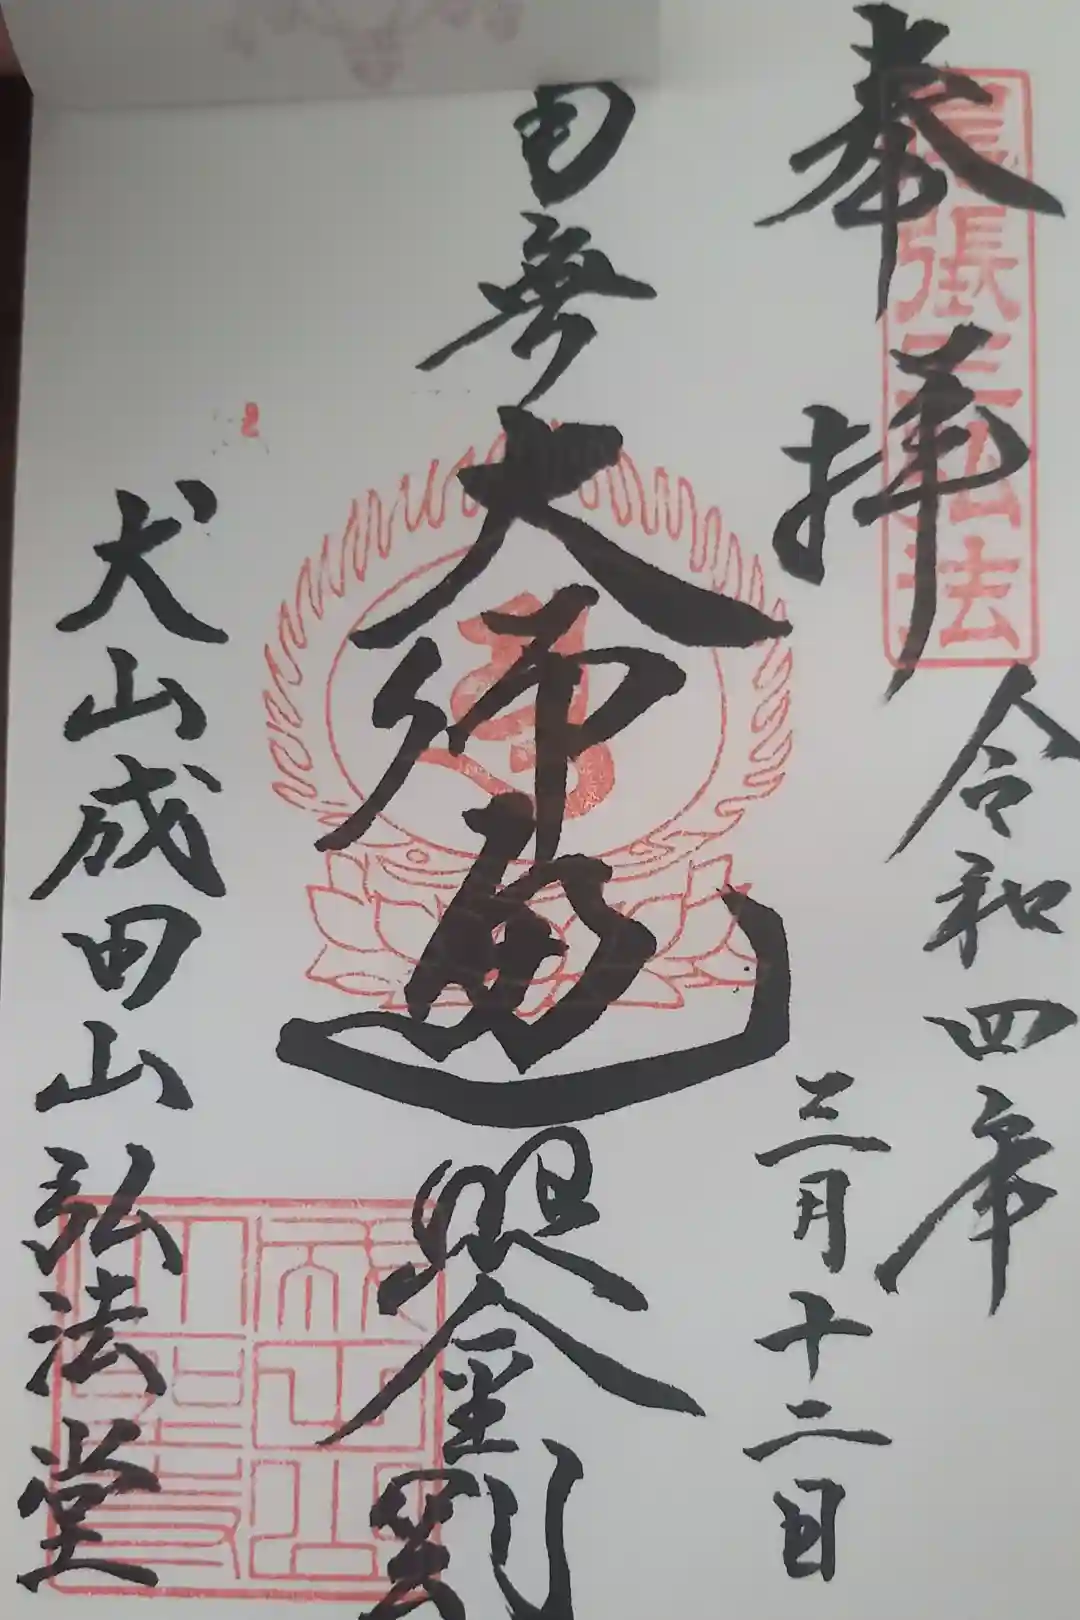 奉拝
尾張三弘法
令和四年
三月十二日
南無大師遍照金剛
犬山成田山弘法堂